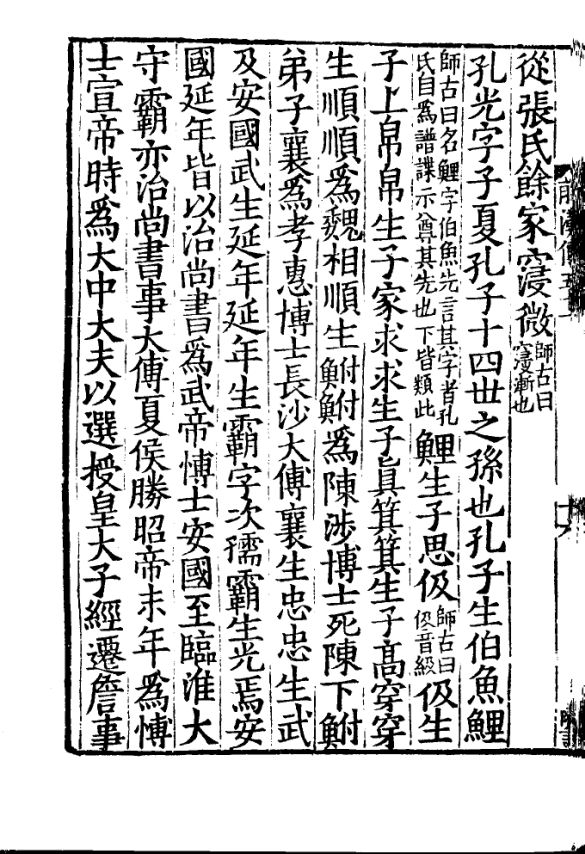 從張氏餘家寖微師古曰寖漸也
孔光字子夏孔子十四世之孫也孔子生伯魚鯉
師古曰名鯉字伯魚先言其字者孔氏自爲譜諜示尊其先也下皆類此鯉生子思伋師古曰伋音級伋生
子上帛帛生子家求求生子眞箕箕生子髙穿穿
生順順爲魏相順生鮒鮒爲陳涉博士死陳下鮒
弟子襄爲孝惠博士長沙大傅襄生忠忠生武
及安國武生延年延年生霸字次孺霸生光焉安
國延年皆以治尚書爲武帝愽士安國至臨淮大
守霸亦治尚書事大傅夏侯勝昭帝末年爲愽
士宣帝時爲大中大夫以選授皇大子經遷詹事